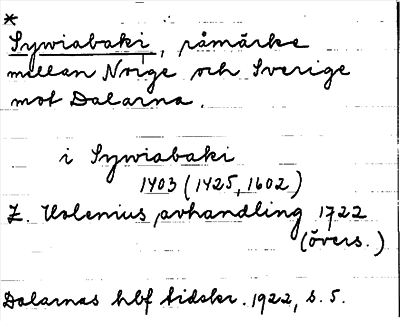 *
Sywiabaki, råmärke
mellan Norge och Sverige
mot Dalarna.
i Sywiabaki
1403 (1425, 1602)
Z. Holenius avhandling 1722
(övers.)
Dalarnas hbf tidskr. 1922, s. 5.